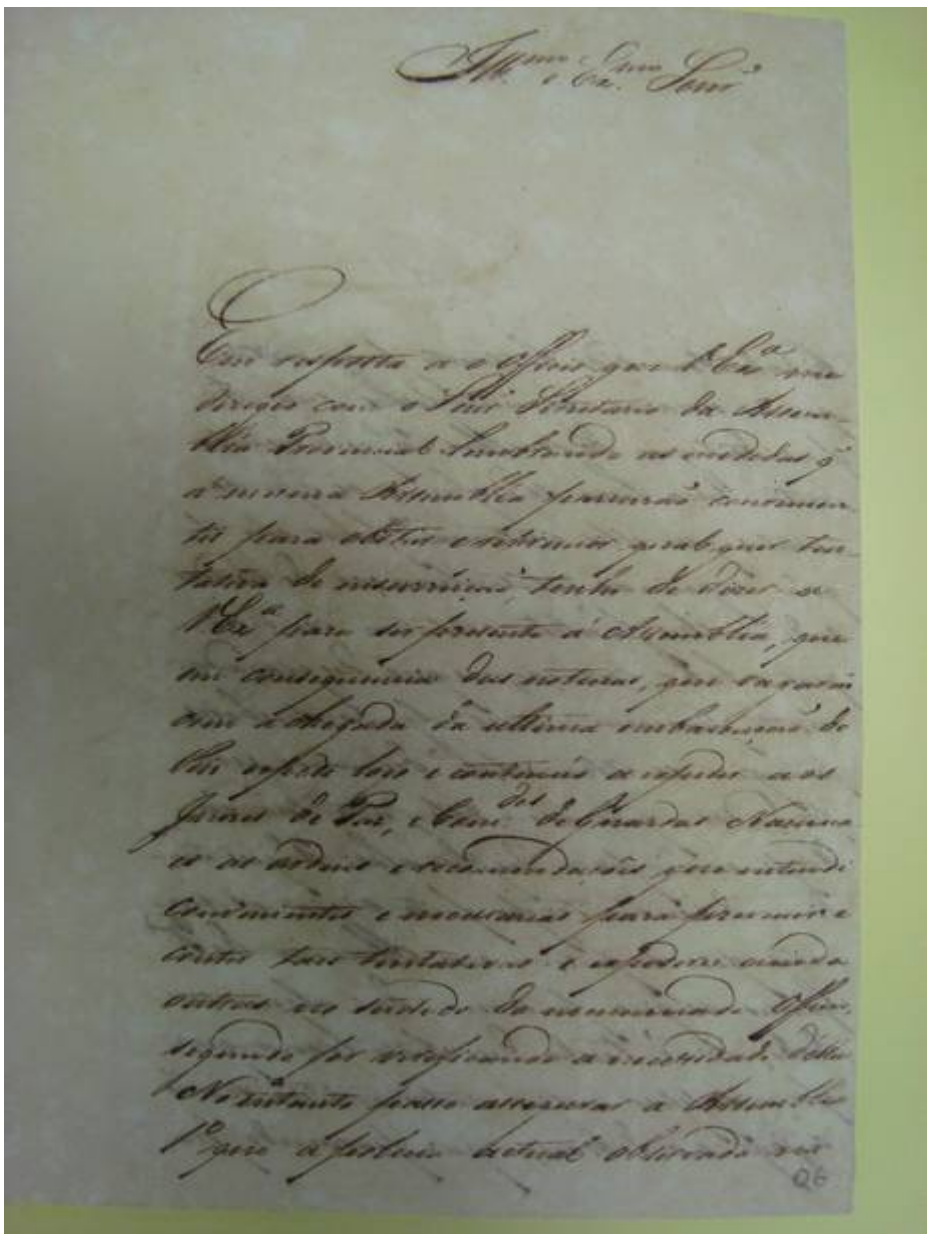 Ill.mo e Ex.mo Senr.
Em resposta a o Officio que V Ex.a me
dirigio com o Senr Secretario da Assem-
blea Provincial lembrando as medidas q'
a mesma Assemblea parecerão convenien-
tes para obstar e reprimir qualquer ten-
tativa de insurreicaõ tenho de dizer a
V Ex.a para ser presente á Assemblea, que
em consequencia das noticias, que vagarão
com a chegada da ultima embarcação do
expedi logo e continuo a expedir a os
Juizes de Paz, e Com.des de Guardas Naciona
es as ordens e recomendações que entendi
convenientes e necessarias para prevenir e
conter taes tentativas e expedirei ainda
outras no sentido do mencionado Officio,
segundo for verificando a necessidade dellas
No entanto passo assegurar a Assemblea
1º que a policia actual observada
26